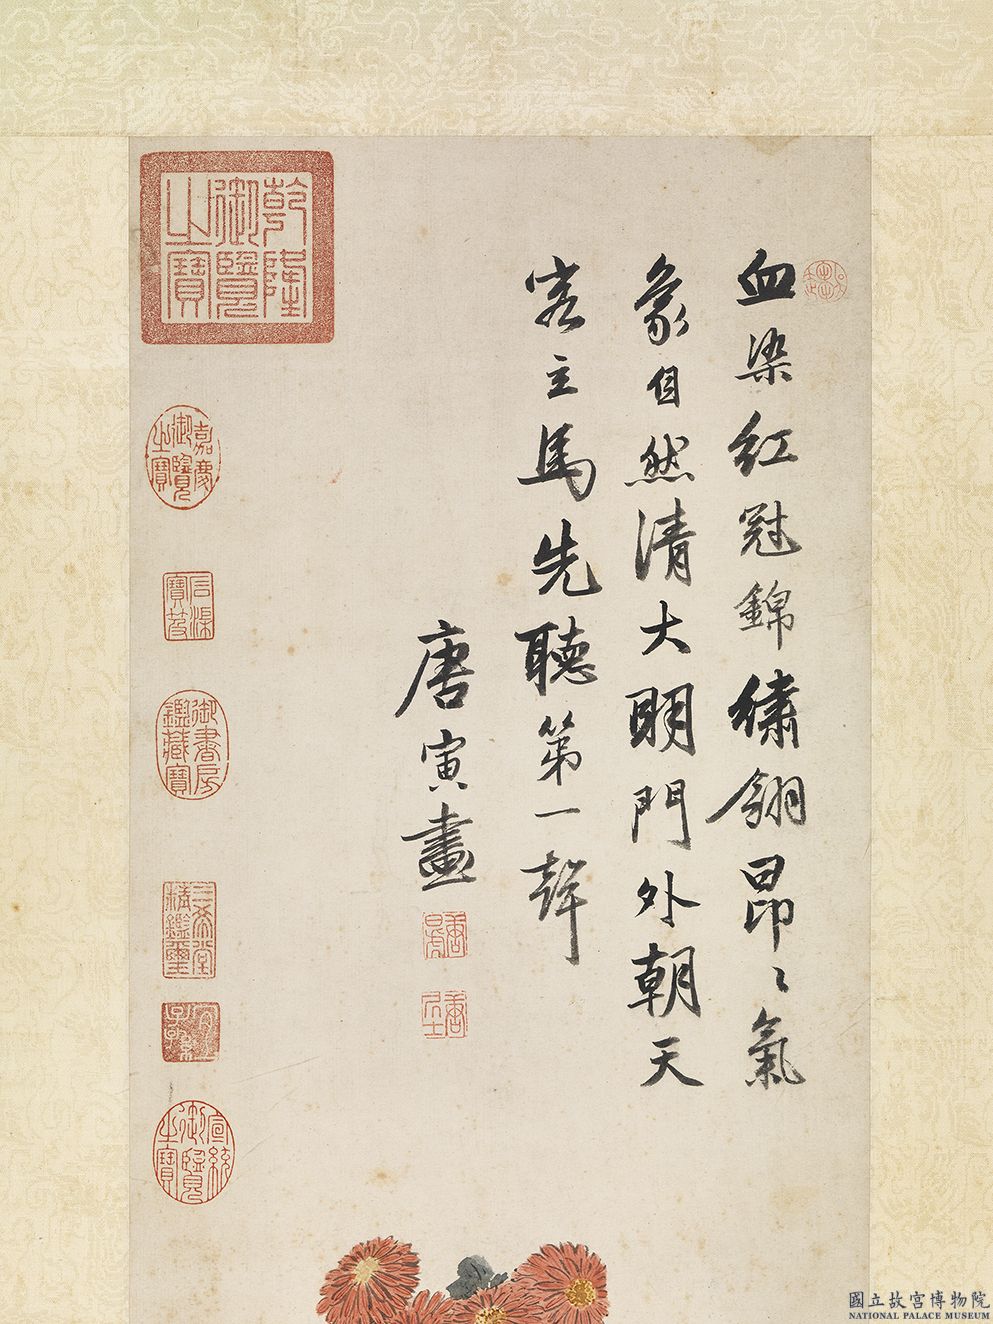 血染紅冠錦繡翎昂〻氣
象自然清大明門外朝天
客立馬先聽第一聲
唐寅畫
乾隆御覽之寶
嘉慶御覽之寶
石渠寶笈
御書房鑑藏寶
三希堂精鑑璽
宜子孫
宣統御覽之寶
國立故宮博物院
NATIONAL PALACE MUSEUM